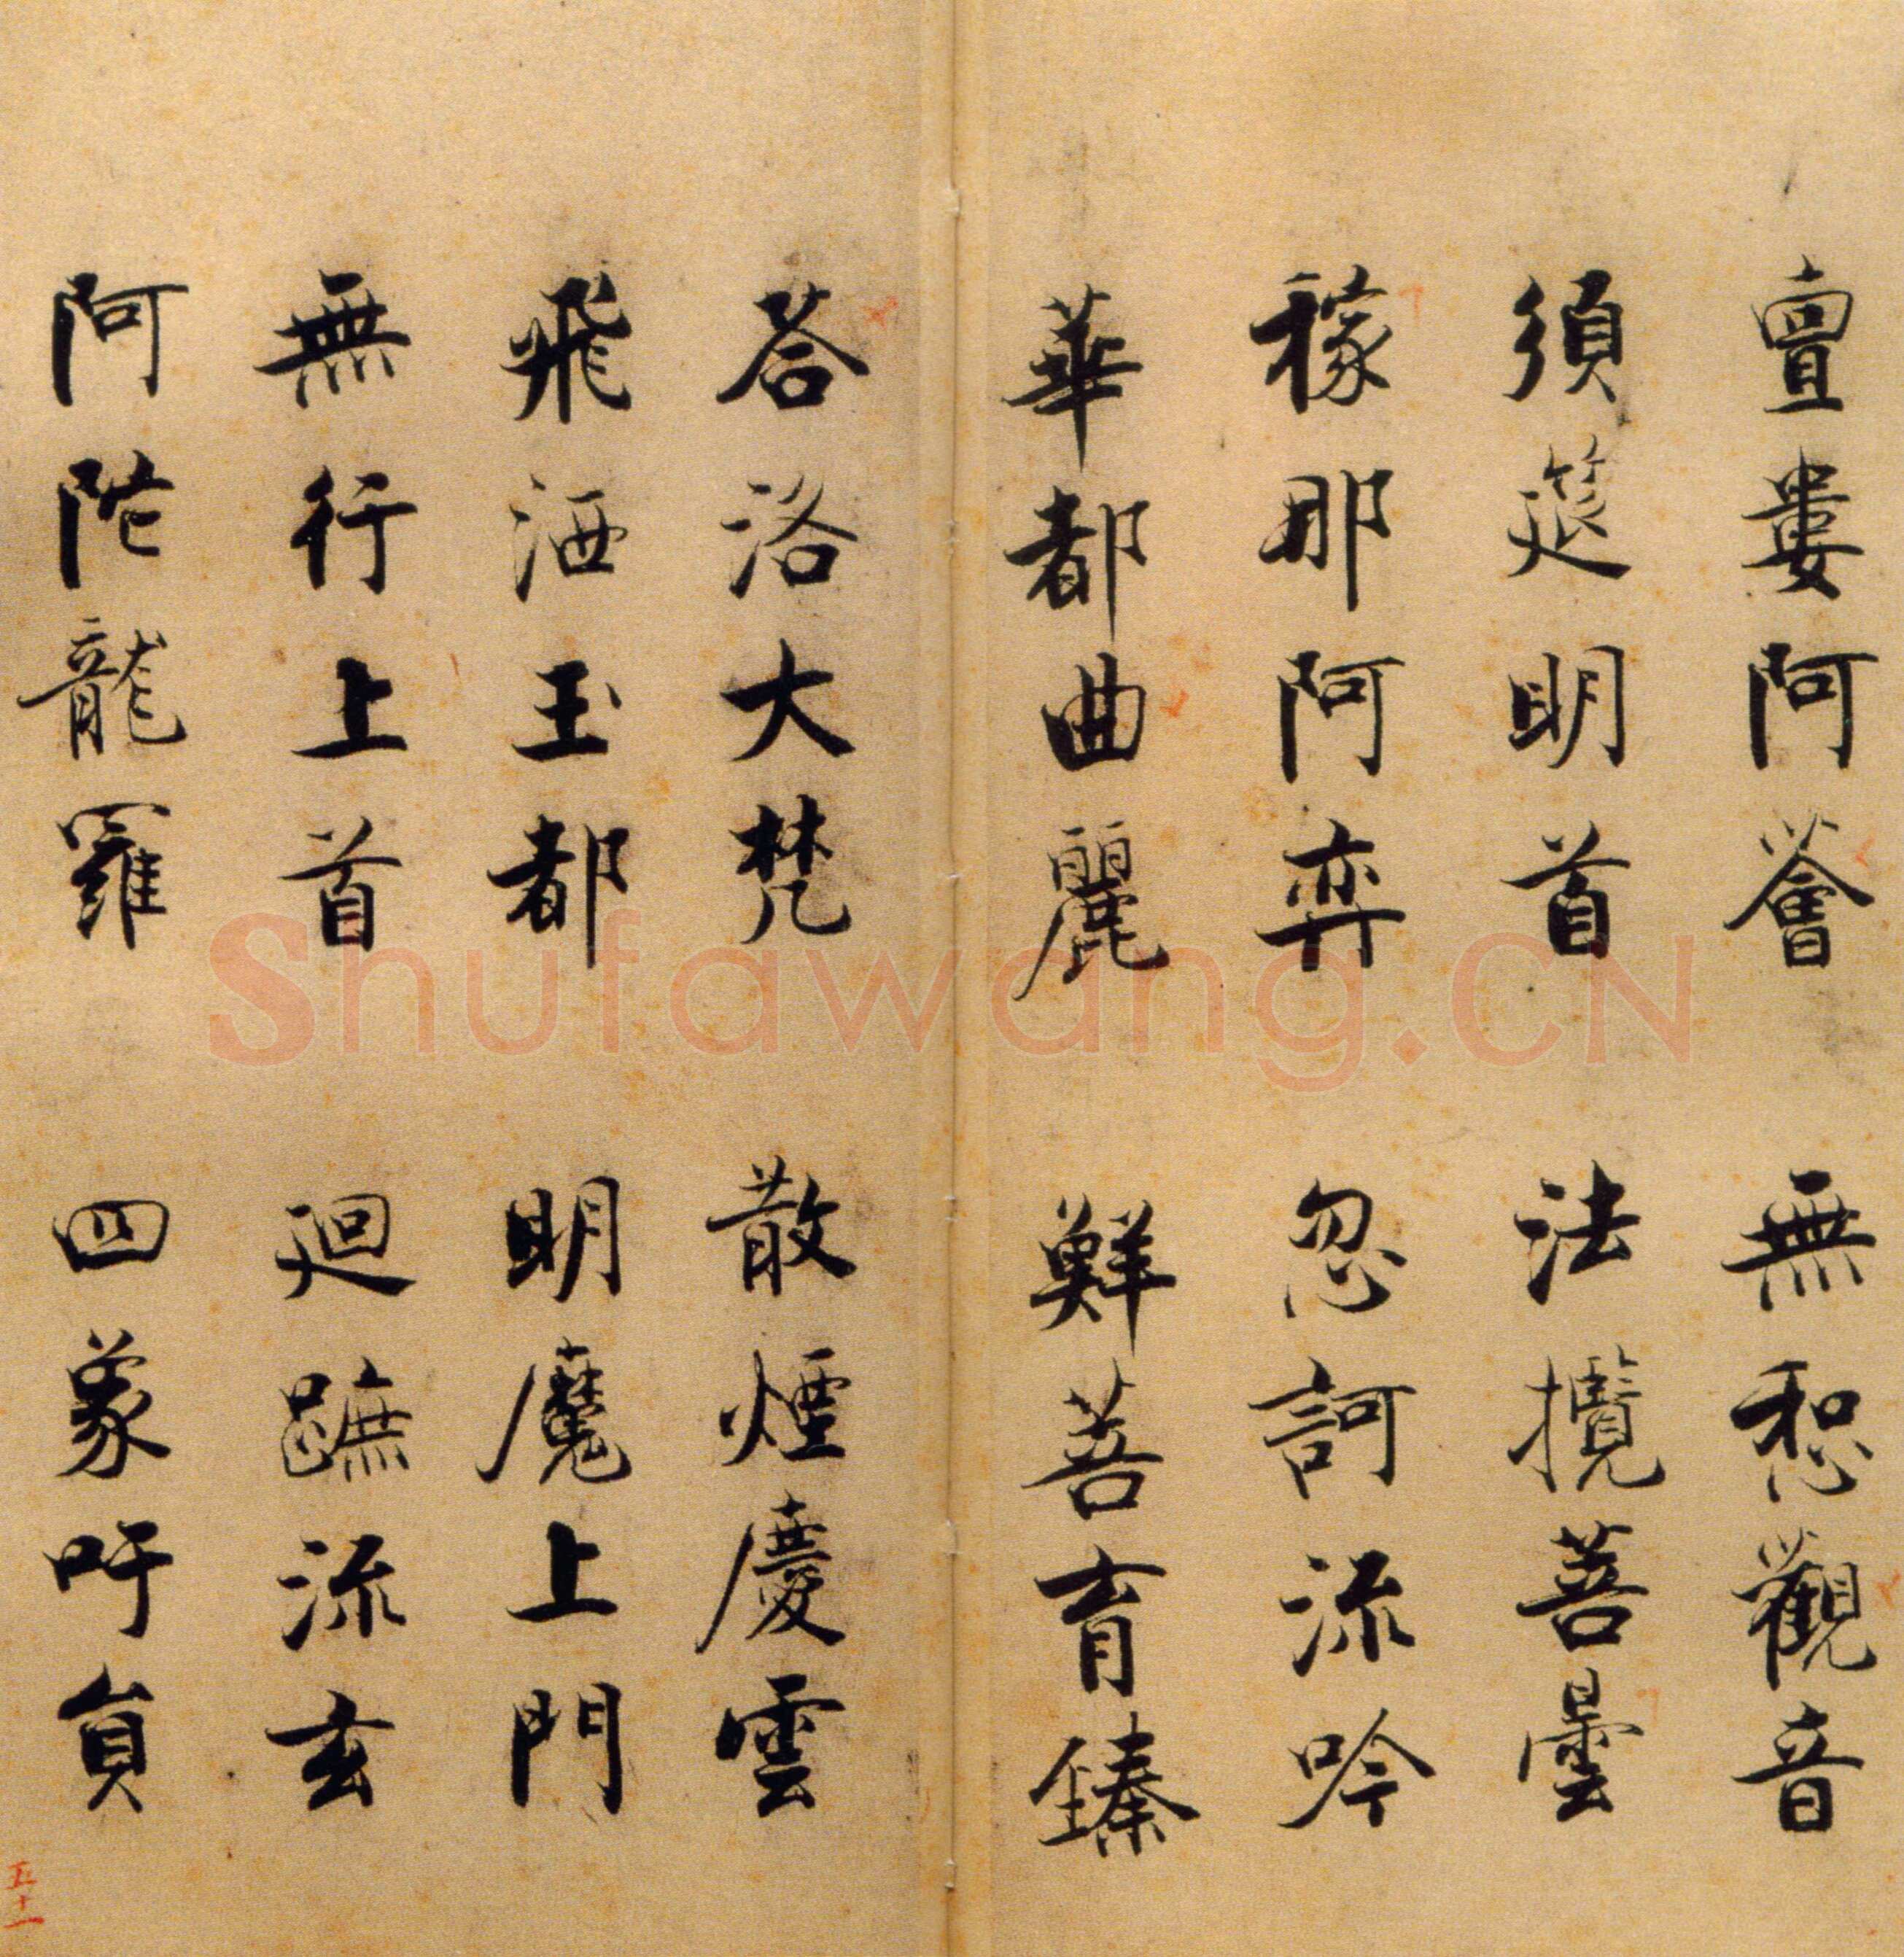 亶婁阿薈 無惒觀音
須筵明首 法攬菩曇
稼那阿弈 忽訶流吟
華都曲麗 鮮菩育臻
荅洛大梵 散煙慶雲
飛洒玉都 明魔上門
無行上首 迴蹠流玄
阿陁龍羅 四象吁員
五十一
Shufawang.CN